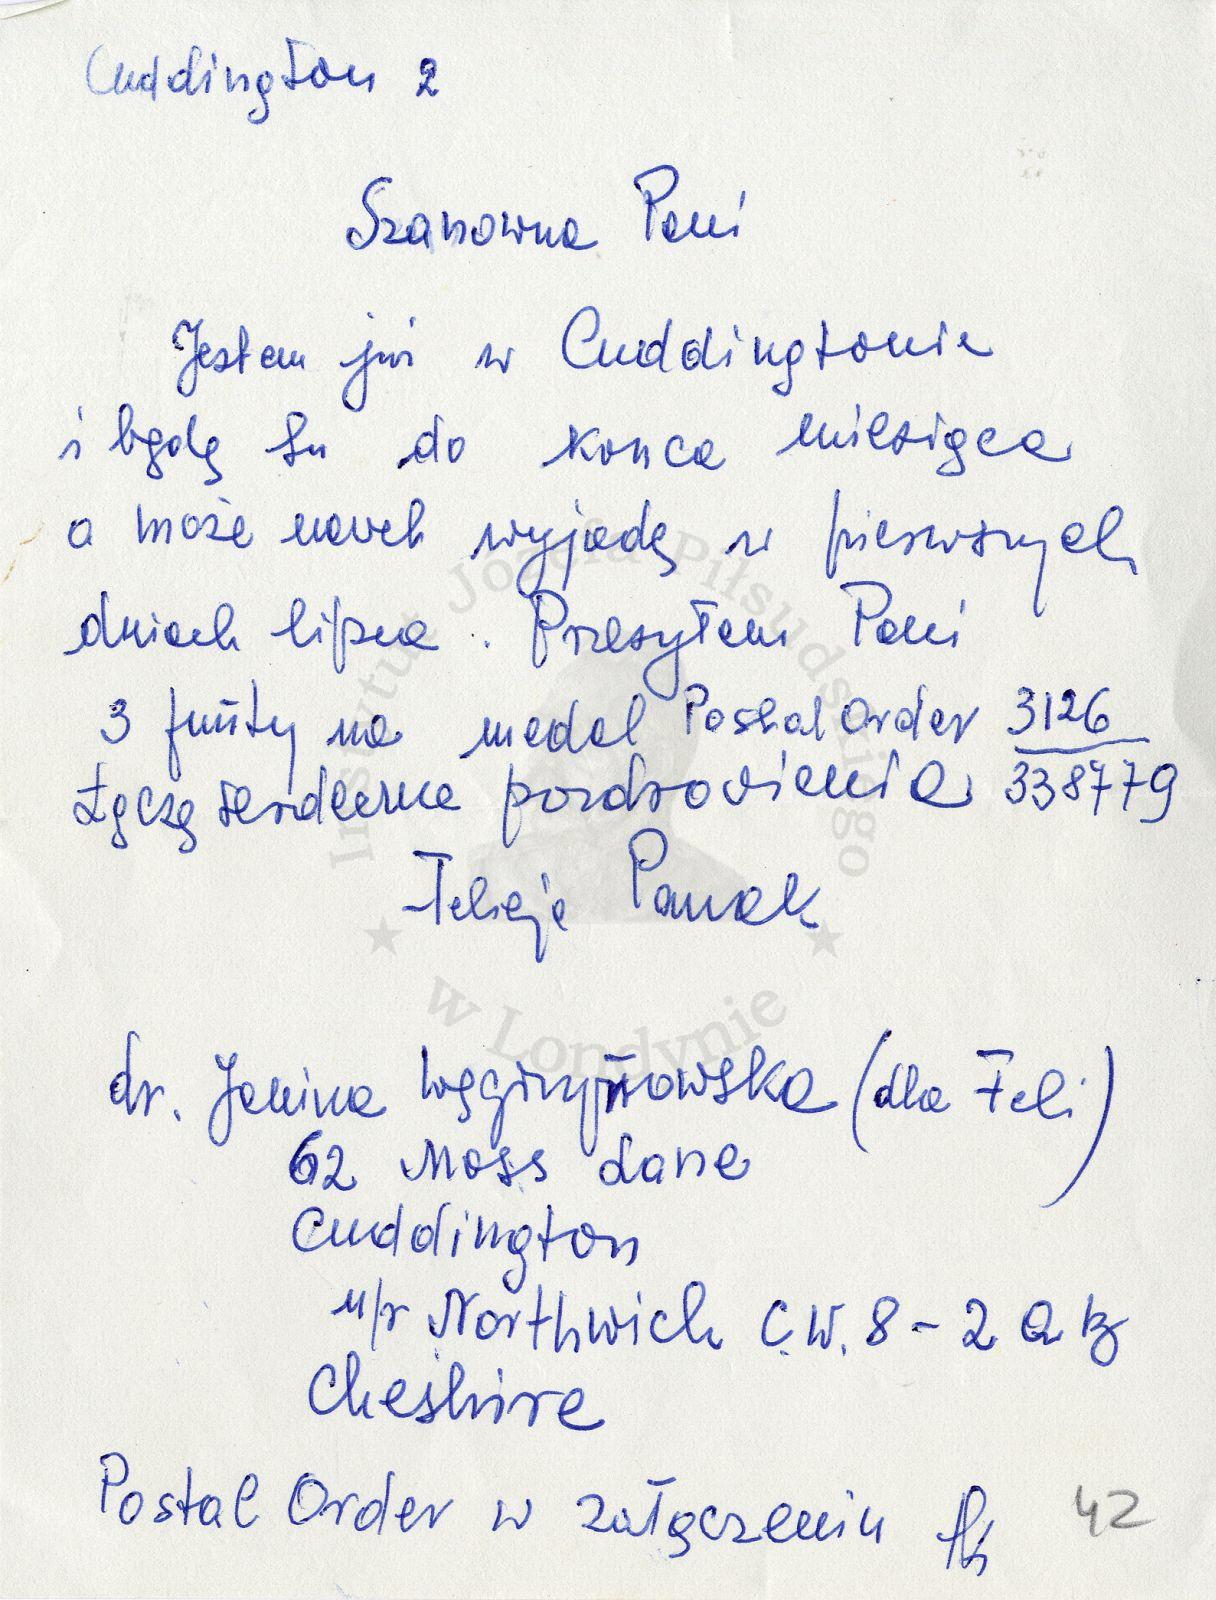 Cuddington 2
Szanowna Pani
Jestem już w Cuddingtonie
i będę tu do końca miesiąca
a może nawet wyjadę w pierwszych
dniach lipca. Przesyłam Pani
3 funty na medal Postal Order 3126
338779
Łączę serdeczne pozdrowienia
Felicja Panak
dr. Janina (dla Feli)
62 Moss Lane
Cuddington
n/r Northwich C.W. 8 - 2
Cheshire
Postal Order w załączeniu
42
Instytut Józefa Piłsudskiego
w Londynie